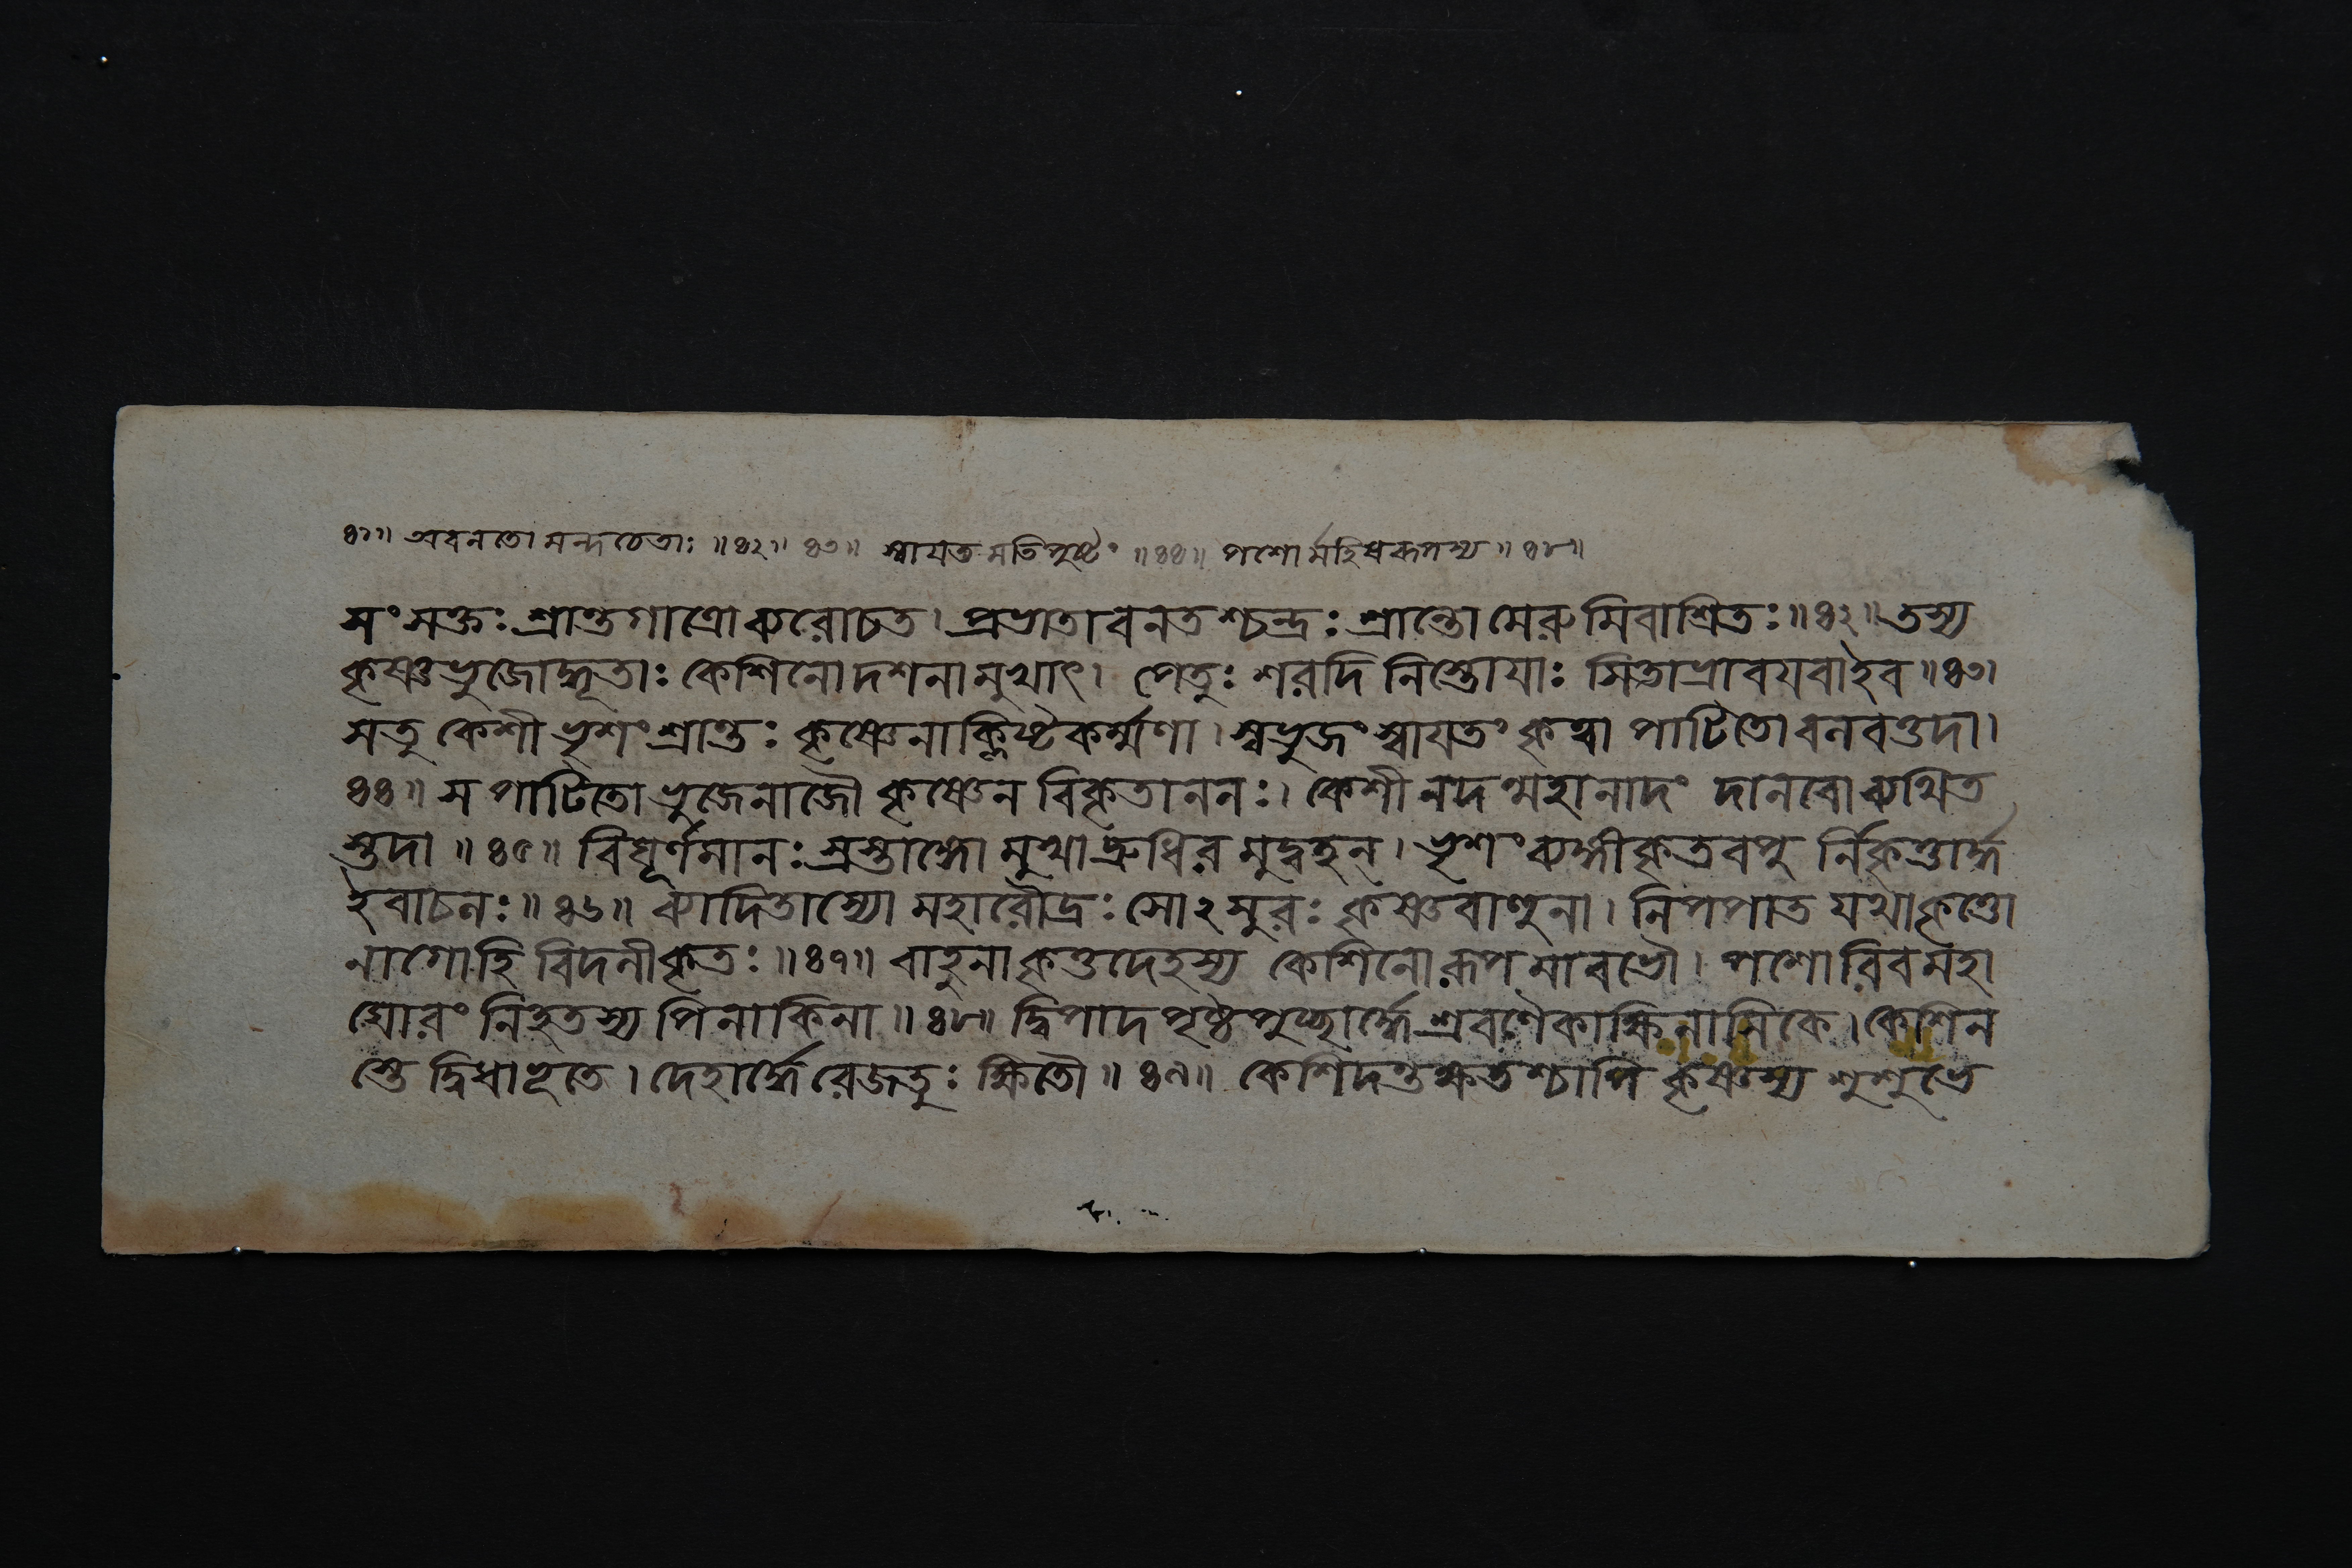 ৪১॥ অবনতো মন্দচেতাঃ ॥৪২॥ ৪৩॥ স্বায়ত মতিপুষ্টং ॥৪৪॥ পশোর্মহিষরূপস্য ॥৪৮॥
সংসক্তঃ শ্রান্তগাত্রো ব্যরোচত। প্রভাতাবনতশ্চন্দ্রঃ শ্রান্তো মেরুমিবাশ্রিতঃ॥৪২॥ তস্য
কৃষ্ণভুজোদ্ধূতাঃ কেশিনো দশনা মুখাৎ। পেতুঃ শরদি নিস্তোযাঃ সিতাভ্রাবযবা ইব॥৪৩।
স তু কেশী ভৃশং শ্রান্তঃ কৃষ্ণেনাক্লিষ্টকর্ম্মণা। স্বভুজং স্বাযতং কৃত্বা পাটিতো বনবত্তদা।
৪৪॥ স পাটিতো ভুজেনাজৌ কৃষ্ণেন বিকৃতাননঃ। কেশী নদন্মহানাদং দানবো ব্যথিত
স্তদা॥৪৫॥ বিঘূর্ণমানঃ স্রস্তাঙ্গো মুখাদ্রুধিরমুদ্বহন্। ভৃশং ব্যঙ্গীকৃতবপু র্নিকৃত্তার্দ্ধ
ইবাচলঃ॥৪৬॥ ব্যাদিতাস্যো মহারৌদ্রঃ সোঽসুরঃ কৃষ্ণবাহুনা। নিপপাত যথা কৃত্তো
নাগো হি বিদলীকৃতঃ॥৪৭॥ বাহুনা কৃত্তদেহস্য কেশিনো রূপমাবভৌ। পশোরিব মহা
ঘোরং নিহতস্য পিনাকিনা॥৪৮॥ দ্বিপাদপৃষ্ঠপুচ্ছার্দ্ধে শ্রবণৈকাক্ষিনাসিকে। কেশিন
স্তে দ্বিধাভূতে। দেহার্দ্ধে রেজতুঃ ক্ষিতৌ॥৪৯॥ কেশিদন্তক্ষতশ্চাপি কৃষ্ণস্য শুশুভে